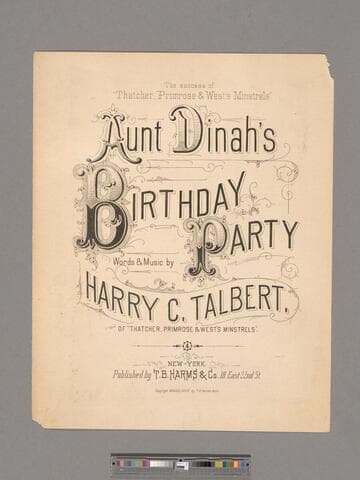 The success of
"Thatcher, Primrose & West's Minstrels"
Aunt Dinah's
Birthday
Party
Words & Music by
HARRY C. TALBERT,
OF "THATCHER, PRIMROSE & WEST'S MINSTRELS".
4
NEW-YORK
Published by T.B. HARMS & Co. 18 East 22nd St.
Copyright by T.B. Harms & Co.